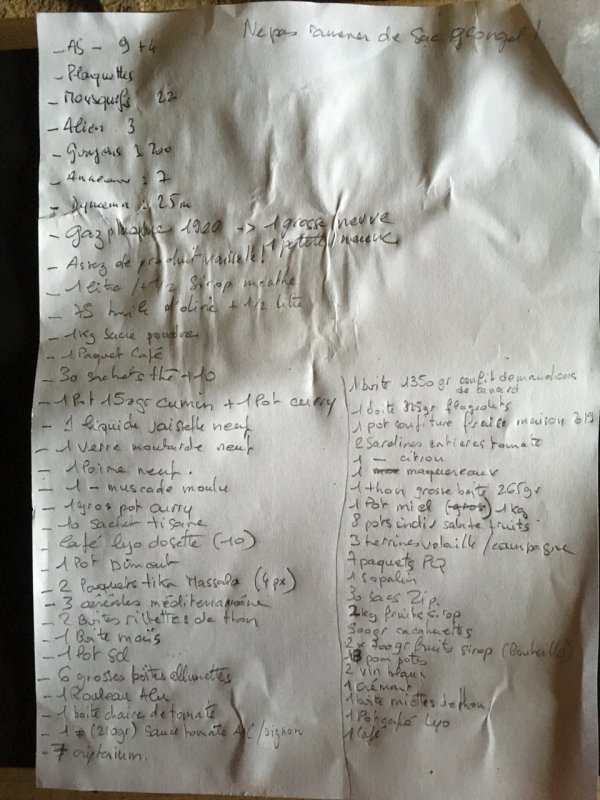 Ne pas ramener de sac !
- AS - 9 + 4
- Plaquettes
- Mousquifs : 22
- Alien 3
- Goujons : 200
- Anneaux : 7
- Dyneema : 25m
- Gaz 1 grosse neuve
1 petite neuve
- Assez de produit vaisselle !
- 1 litre + 1/2 Sirop menthe
- 75 huile d'olive + 1/2 litre
- 1 kg sucre poudre
- 1 Paquet Café
- 30 sachets thé + 10
- 1 Pot 150gr cumin + 1 Pot curry
- 1 liquide vaisselle neuf
- 1 verre moutarde neuf
- 1 Poivre neuf.
- 1 - muscade moulu
- 1 gros pot curry
- 10 sachet tisane
- Café lyo dosette (10)
- 1 Pot Piment
- 2 Paquets tika Massala (4 px)
- 3 céréales méditerranéne
- 2 Boites rillettes de thon
- 1 Boite maïs
- 1 Pot sel
- 6 grosses boîtes allumettes
- 1 Rouleau Alu
- 1 boite chaire de tomate
- 1 (210gr) Sauce tomate Ail/oignon
- 7
1 boite 1350gr confit de manchons
de canard
1 boite 825gr flageolets
1 pot confiture fraise maison 2019
2 Sardines entieres tomate
1 - citron
1 maquereaux
1 thon grosse boite 265gr
1 Pot miel (gros) 1 kg
8 pots indiv salade fruits
3 terrines volaille / campagne
7 paquets PQ
1 sopalin
30 sacs Zip.
2kg fruits sirop
300gr cacahuetes
2 x 700gr fruits sirop (bouteilles)
8 pom potes
2 vin blanc
1 crémant
1 boite miettes de thon
1 Pot café lyo
1 Café